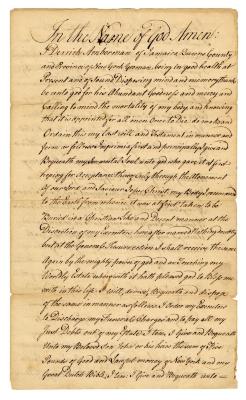 In the Name of God Amen:
I Derrick Amberman of Jamaica Queens County
and Province of New York Yeoman, being in good health at
Present and of Sound Disposing mind and memory thanks
be unto god for his Abundant Goodness and mercy and
Calling to mind the mortality of my body and knowing
that it is appointed for all men Once to Die do make and
Ordain this my Last will and testament in manner and
form as follows Imprimis first and principally I give and
Bequeath my Immortal Soul unto god who gave it
hoping for Acceptance through the Attonement
of our Lord and Saviour Jesus Christ, my Body I commend
to the Earth from whence it was taken to be
Buried in a Christian like and Decent manner at the
Discretion of my Executors hereafter named nothing doubting
but at the General Resurrection I shall receive the same
Again by the mighty power of god and as Touching my
Worldly Estate wherewith it hath pleased god to Bless me
with in this life I Will, devise, Bequeath and dispose
of the same in manner as follows I Order my Executors
to Discharge my Funeral Charges and to pay all my
just Debts out of my Estate Item I Give and Bequeath
Unto my Beloved Son John or his heirs the sum of Five
Pounds of Good and Lawful money of New York and my
Great Dutch Bible, Item I Give and Bequeath unto